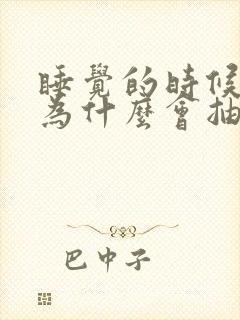 睡覺的時候
為什麼會抽
巴中子